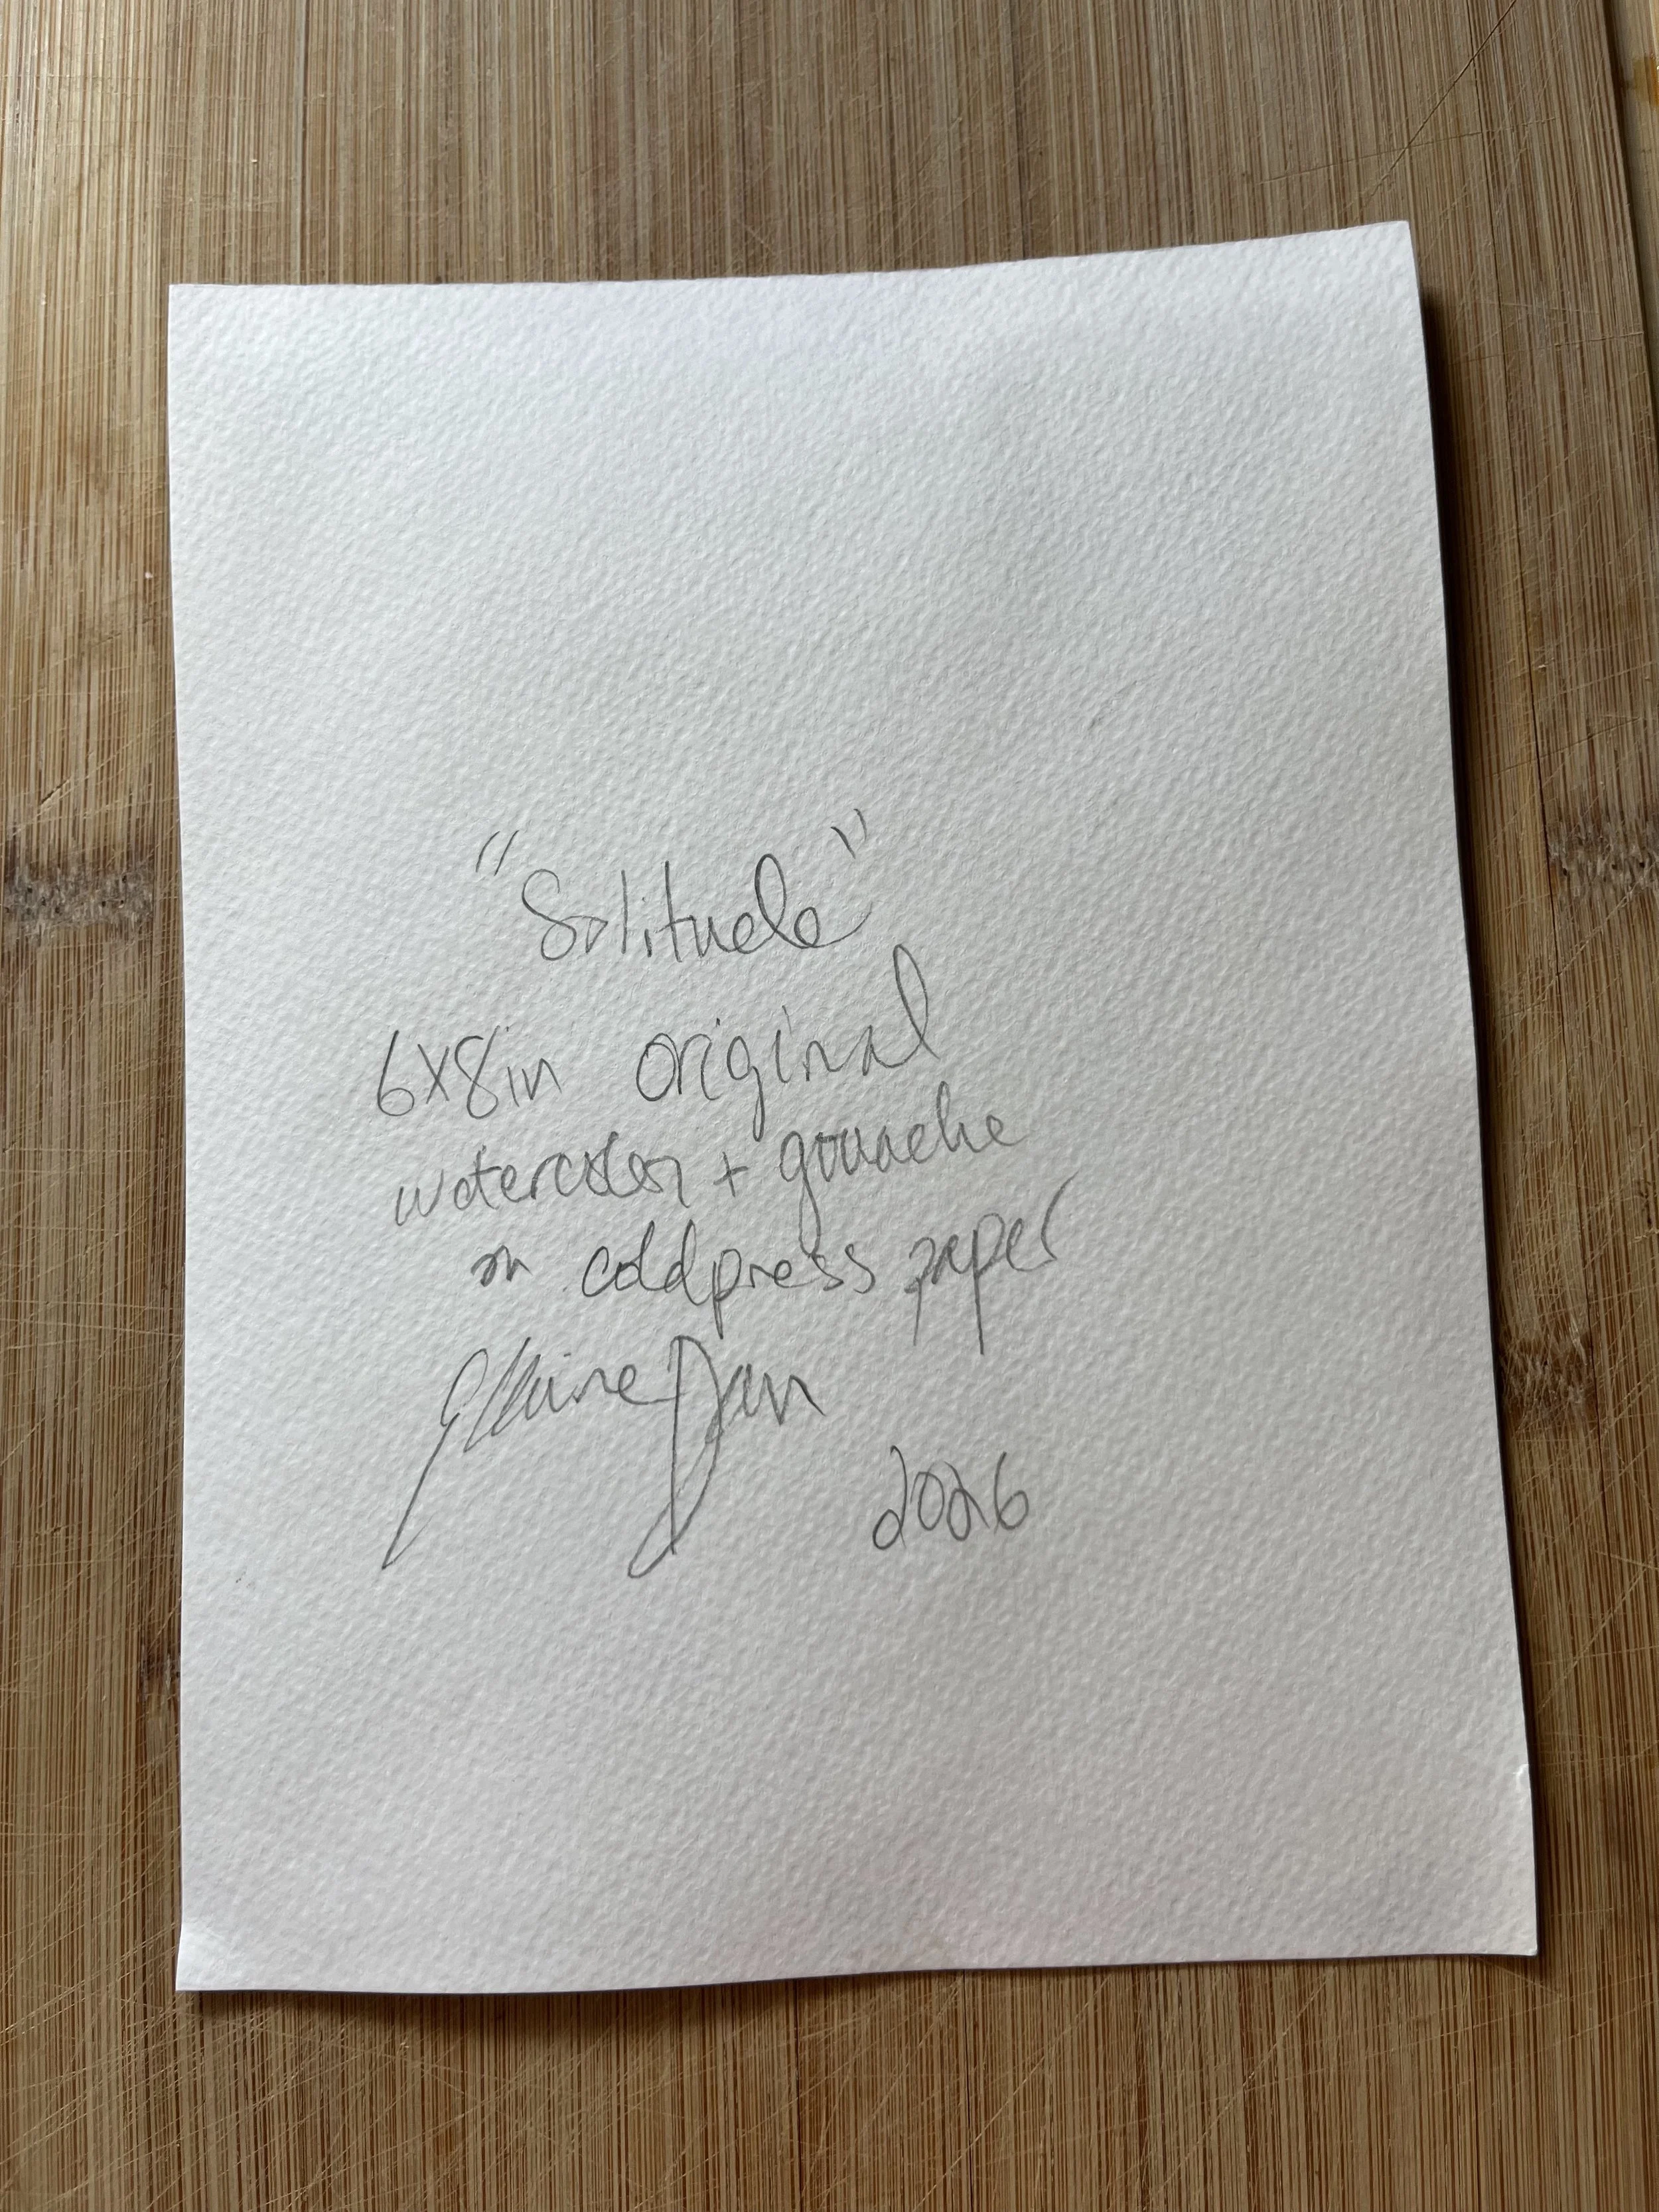 "Solitude"
6x8in original
watercolor + gouache
on coldpress paper
Elaine
2026